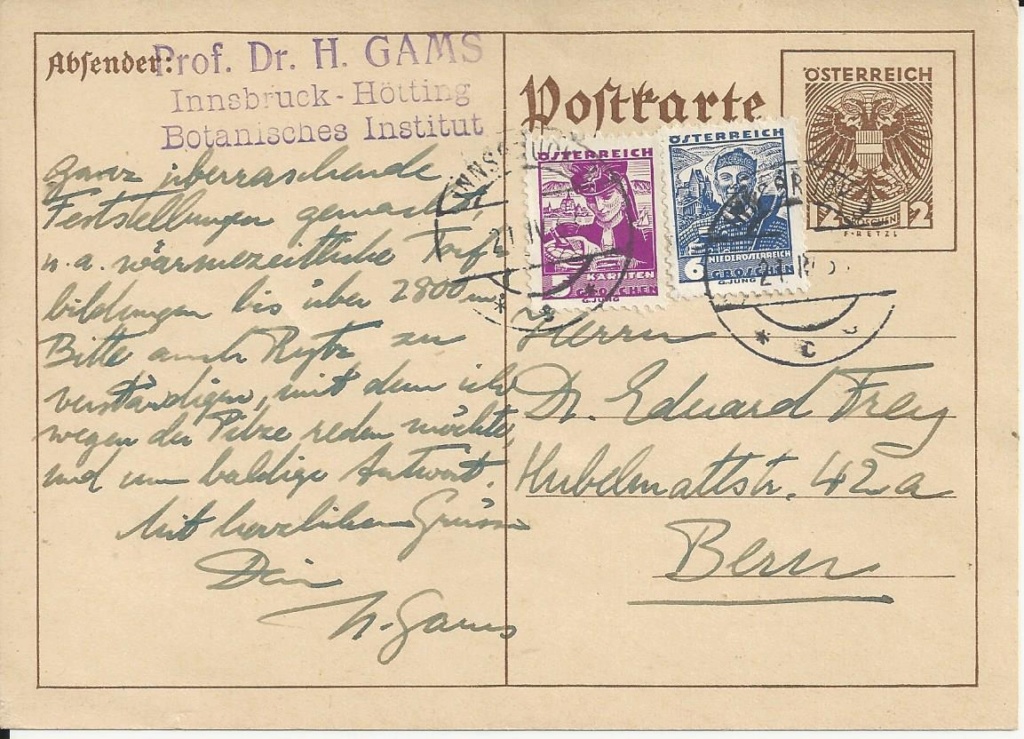 Absender:
Prof. Dr. H. GAMS
Innsbruck-Hötting
Botanisches Institut
ganz überraschende
Feststellungen gemacht,
u. a. wärmezeitliche Torf-
bildungen bis über 2800 m
Bitte auch Rytz zu
verständigen, mit dem ich
wegen der Pilze reden möchte,
und um baldige Antwort.
Mit herzlichen Grüssen
Dein
H. Gams
Postkarte
ÖSTERREICH
12 GROSCHEN 12
F·RETZL
ÖSTERREICH
KÄRNTEN
GROSCHEN
G.JUNG
ÖSTERREICH
NIEDERÖSTERREICH
6 GROSCHEN
G.JUNG
INNSBRUCK
Herrn
Dr. Eduard Frey
Hubelmattstr. 42a
Bern